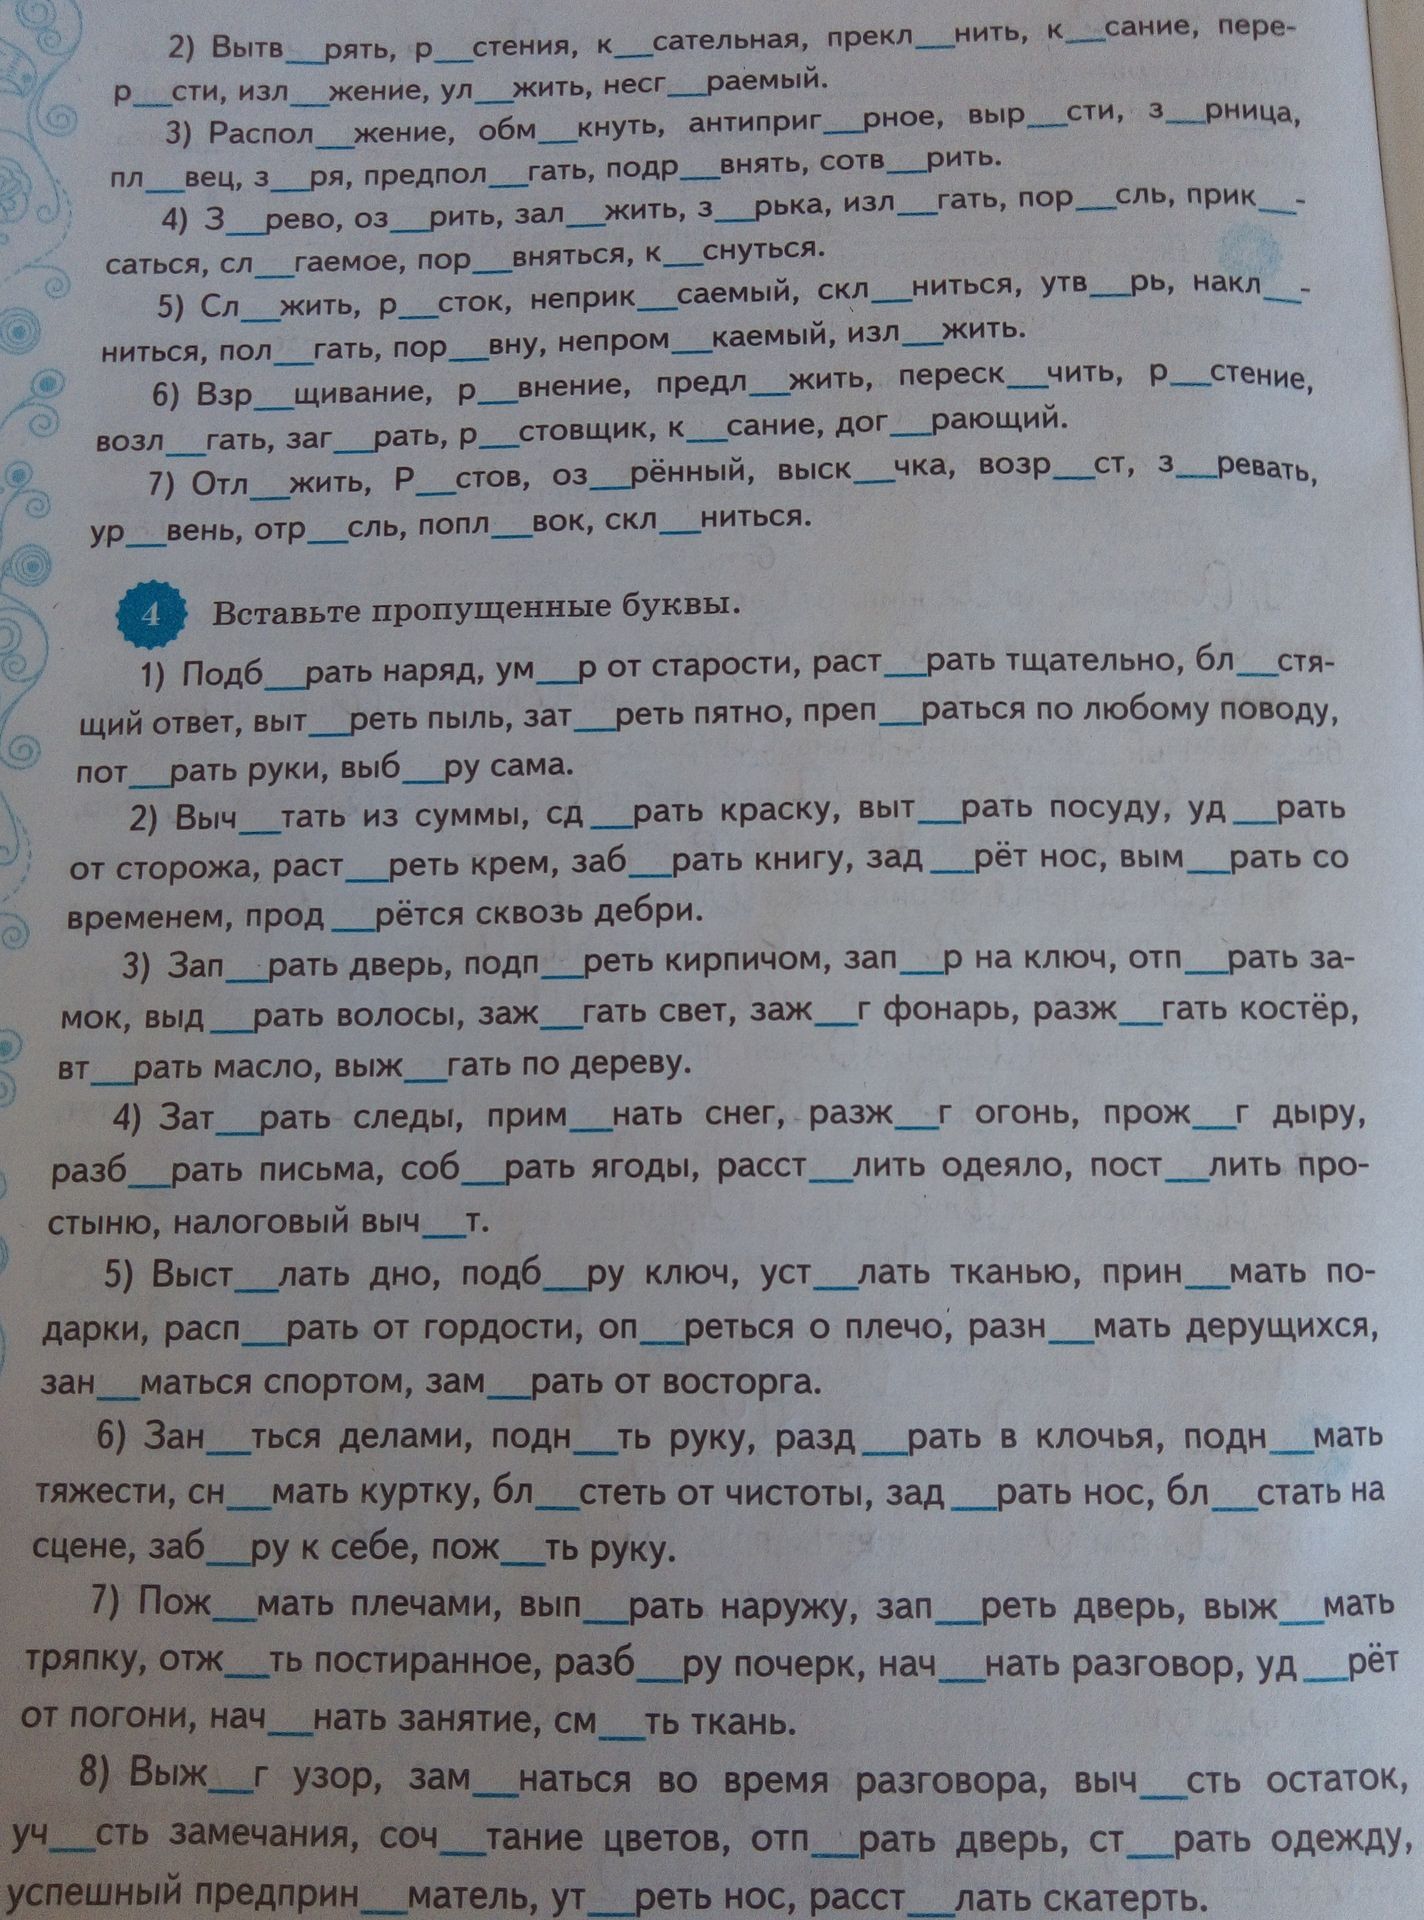 2) Вытв__рять, р__стения, к__сательная, прекл__нить, к__сание, пере-
р__сти, изл__жение, ул__жить, несг__раемый.
3) Распол__жение, обм__кнуть, антиприг__рное, выр__сти, з__рница,
пл__вец, з__ря, предпол__гать, подр__внять, сотв__рить.
4) З__рево, оз__рить, зал__жить, з__рька, изл__гать, пор__сль, прик__-
саться, сл__гаемое, пор__вняться, к__снуться.
5) Сл__жить, р__сток, неприк__саемый, скл__ниться, утв__рь, накл__-
ниться, пол__гать, пор__вну, непром__каемый, изл__жить.
6) Взр__щивание, р__внение, предл__жить, переск__чить, р__стение,
возл__гать, заг__рать, р__стовщик, к__сание, дог__рающий.
7) Отл__жить, Р__стов, оз__рённый, выск__чка, возр__ст, з__ревать,
ур__вень, отр__сль, попл__вок, скл__ниться.
4 Вставьте пропущенные буквы.
1) Подб__рать наряд, ум__р от старости, раст__рать тщательно, бл__стя-
щий ответ, выт__реть пыль, зат__реть пятно, преп__раться по любому поводу,
пот__рать руки, выб__ру сама.
2) Выч__тать из суммы, сд__рать краску, выт__рать посуду, уд__рать
от сторожа, раст__реть крем, заб__рать книгу, зад__рёт нос, вым__рать со
временем, прод__рётся сквозь дебри.
3) Зап__рать дверь, подп__реть кирпичом, зап__р на ключ, отп__рать за-
мок, выд__рать волосы, заж__гать свет, заж__г фонарь, разж__гать костёр,
вт__рать масло, выж__гать по дереву.
4) Зат__рать следы, прим__нать снег, разж__г огонь, прож__г дыру,
разб__рать письма, соб__рать ягоды, расст__лить одеяло, пост__лить про-
стыню, налоговый выч__т.
5) Выст__лать дно, подб__ру ключ, уст__лать тканью, прин__мать по-
дарки, расп__рать от гордости, оп__реться о плечо, разн__мать дерущихся,
зан__маться спортом, зам__рать от восторга.
6) Зан__ться делами, подн__ть руку, разд__рать в клочья, подн__мать
тяжести, сн__мать куртку, бл__стеть от чистоты, зад__рать нос, бл__стать на
сцене, заб__ру к себе, пож__ть руку.
7) Пож__мать плечами, вып__рать наружу, зап__реть дверь, выж__мать
тряпку, отж__ть постиранное, разб__ру почерк, нач__нать разговор, уд__рёт
от погони, нач__нать занятие, см__ть ткань.
8) Выж__г узор, зам__наться во время разговора, выч__сть остаток,
уч__сть замечания, соч__тание цветов, отп__рать дверь, ст__рать одежду,
успешный предприн__матель, ут__реть нос, расст__лать скатерть.